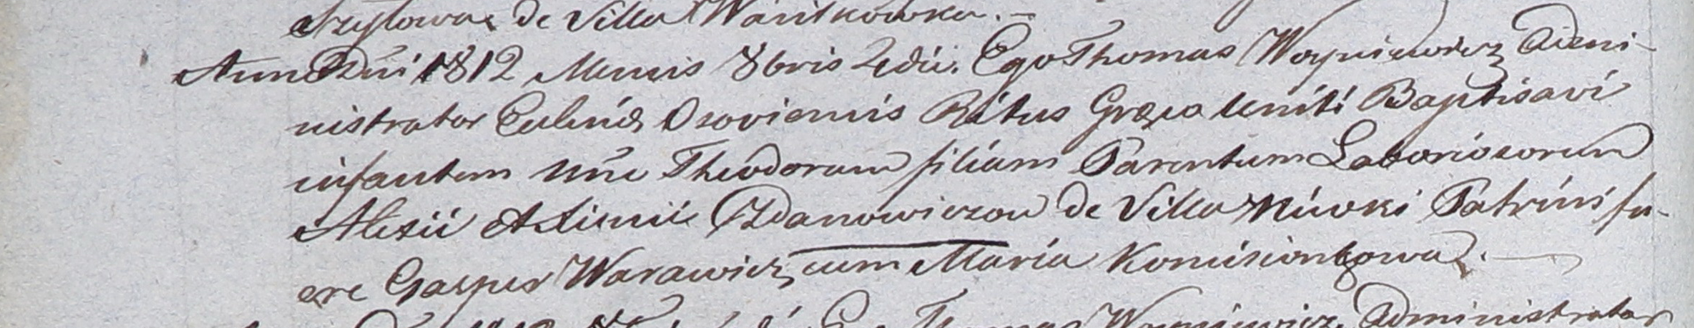 de Villa Wasilkowka.
Anno Dni 1812 Mensis 8bris 2 die. Ego Thomas Woyniewicz Admi-
nistrator Osoviensis Ritus Græco Uniti Baptisavi
infantem nõe Theodoram filiam Parentum Laboriosorum
Alexii Zdanowiczow de Villa Niwki Patrini fu-
ere Gasper Warawicz cum Maria
Thomas Woyniewicz Administrator